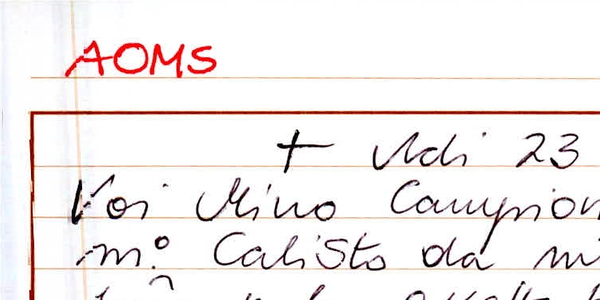 AOMS
+ Adi 23
Voi Mino Campion
m.º Calisto da mi